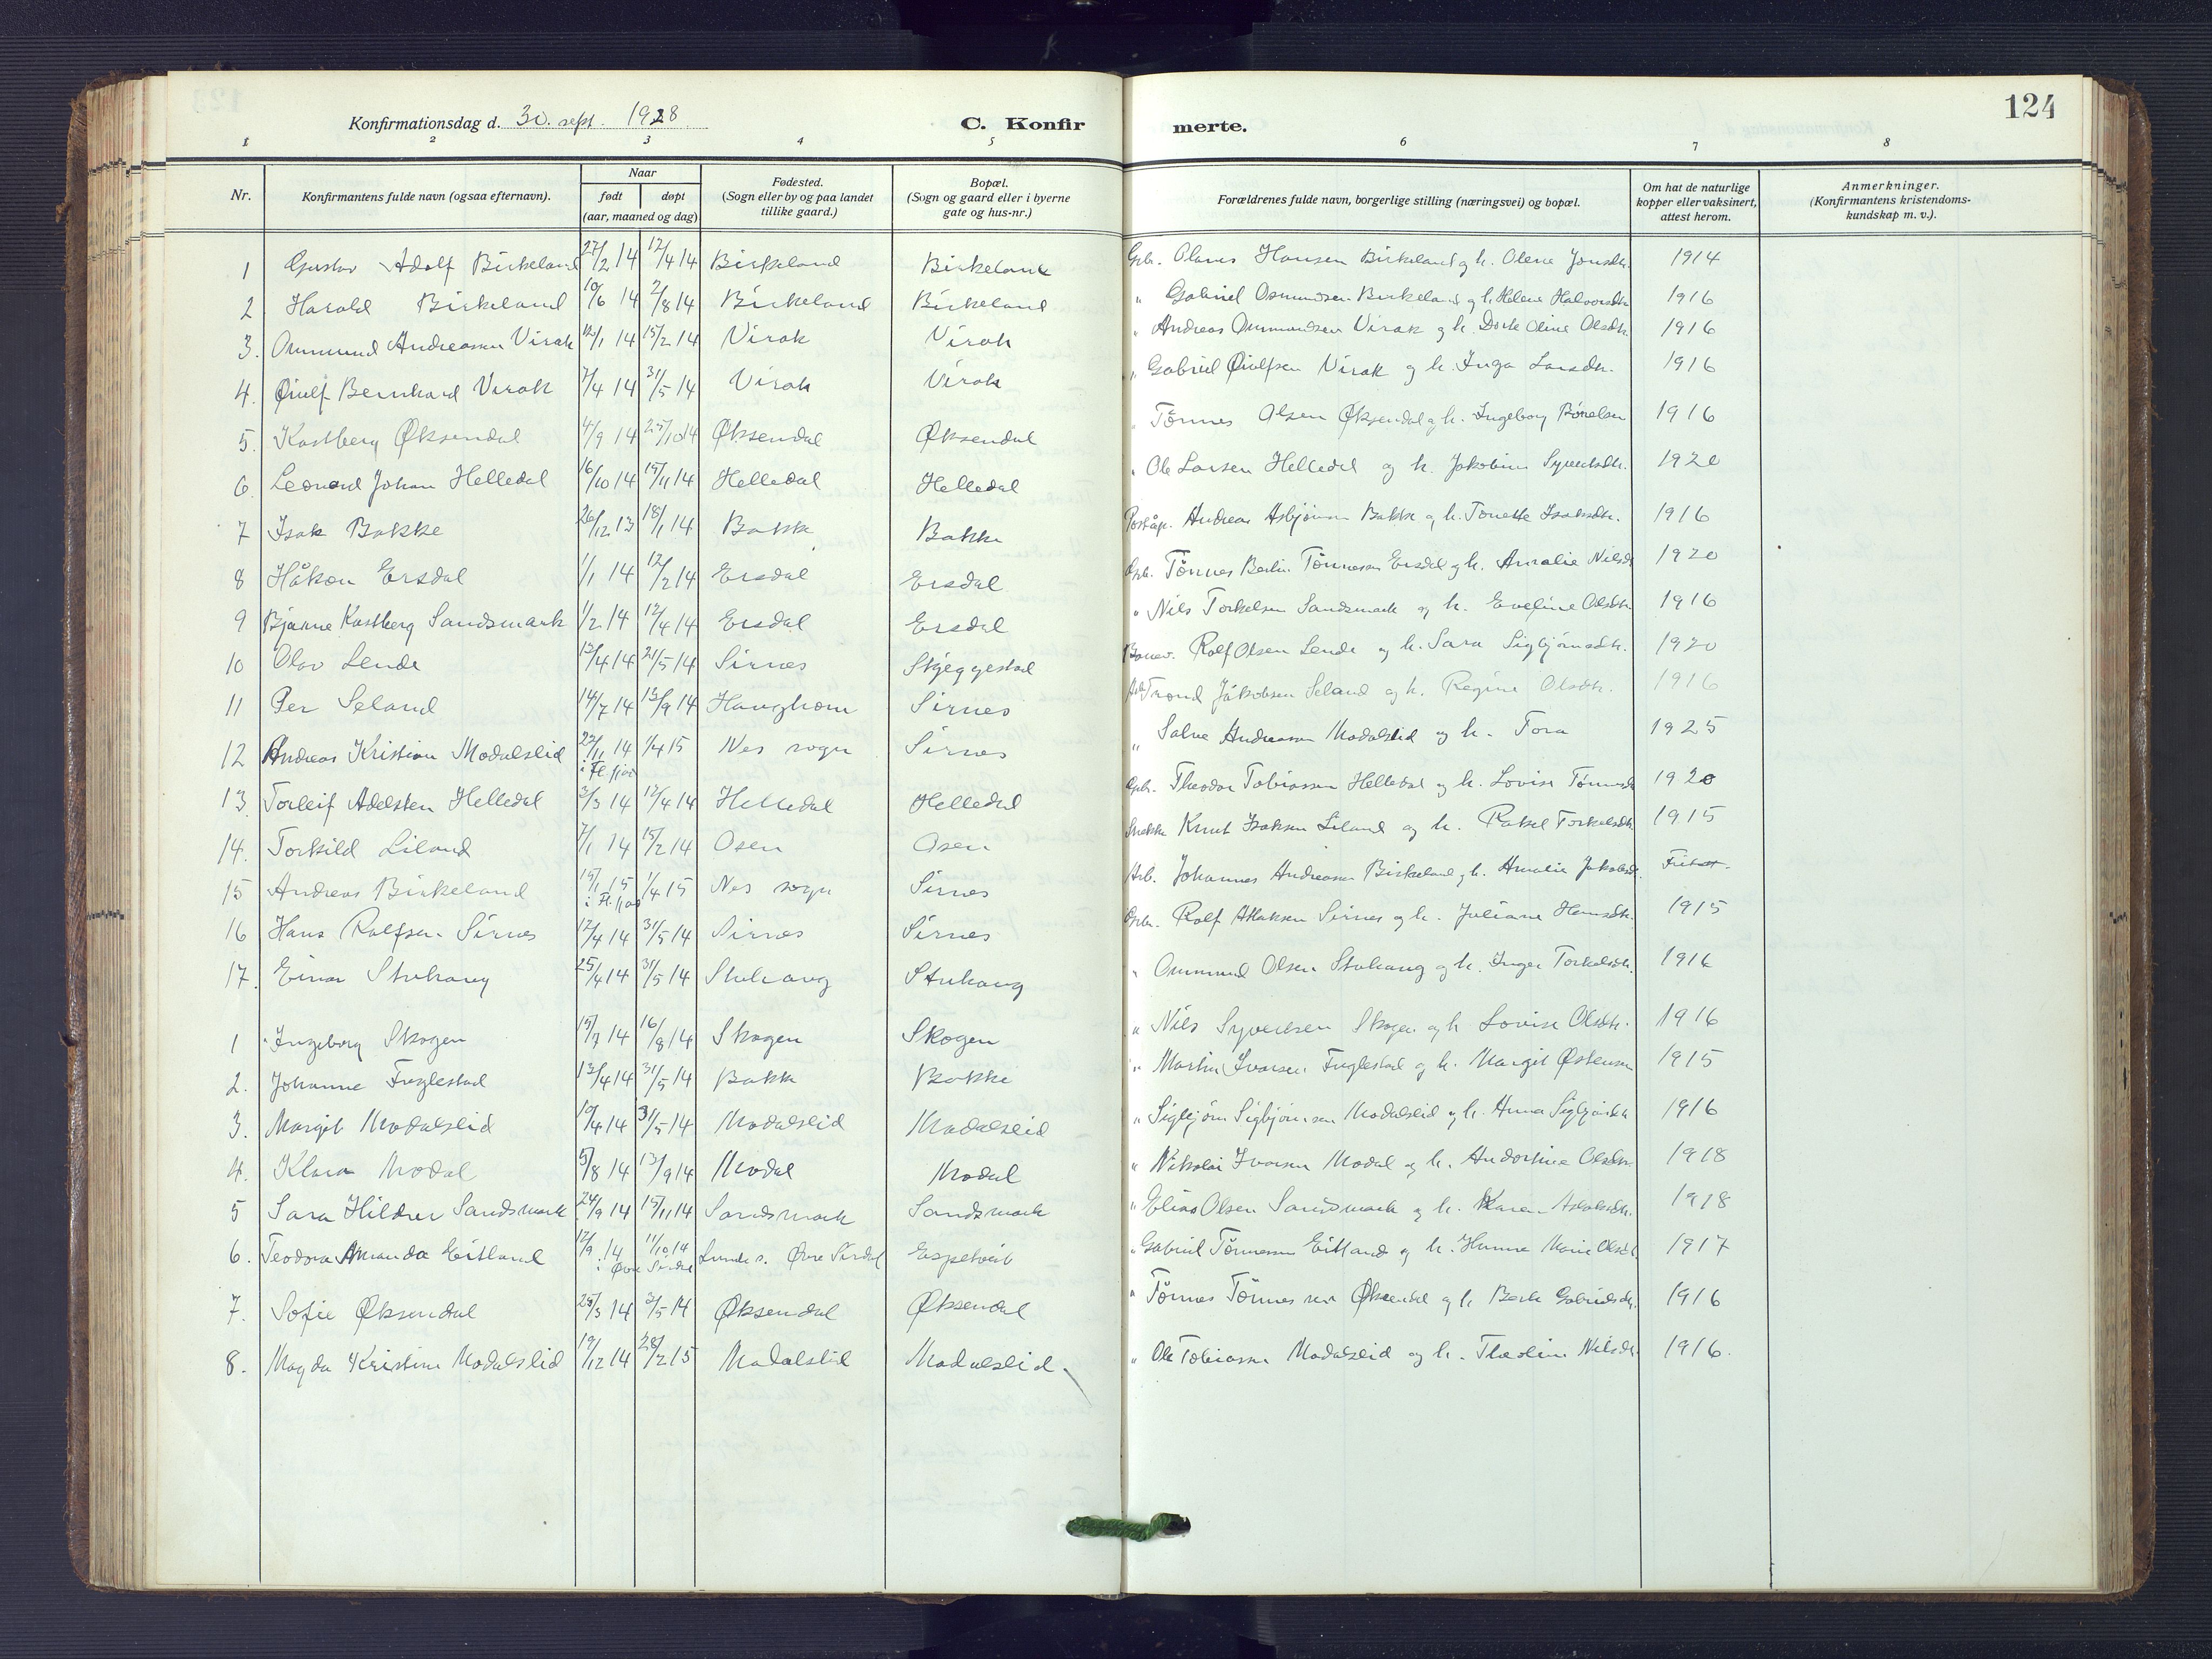 124
Konfirmationsdag d. 30. sept. 1928
C. Konfir merte.
1 2 3 4 5 6 7 8
Nr. Konfirmantens fulde navn (ogsaa efternavn). Naar født døpt (aar, maaned og dag) Fødested. (Sogn eller by og paa landet tillike gaard.) Bopæl. (Sogn og gaard eller i byerne gate og hus-nr.) Forældrenes fulde navn, borgerlige stilling (næringsvei) og bopæl. Om hat de naturlige kopper eller vaksinert, attest herom. Anmerkninger. (Konfirmantens kristendoms-kundskap m. v.).
1 Gustav Adolf Birkeland 27/2 14 12/4 14 Birkeland Birkeland Gbr. Olaus Hansen Birkeland og h. Olene Jonsdtr. 1914
2 Harald Birkeland 10/6 14 2/8 14 Birkeland Birkeland " Gabriel Osmundsen Birkeland og h. Helene Halvorsdtr 1916
3. Ommund Andreassen Virak /1 14 15/2 14 Virak Virak " Andreas Ommundsen Virak og h. Dorte Oline Olsdtr. 1916
4. Øiulf Bernhard Virak 7/4 14 31/5 14 Virak Virak " Gabriel Øiulfsen Virak og h. Inga Larsdtr. 1916
5. Kastberg Øksendal 4/9 14 25/10 14 Øksendal Øksendal " Tønnes Olsen Øksendal og h. Ingeborg 1916
6. Leonard Johan Helledal 16/10 14 15/11 14 Helledal Helledal " Ole Larsen Helledal og h. Jakobine Syvertsdtr. 1920
7 Isak Bakke 26/12 13 18/1 14 Bakke Bakke Poståp. Andreas Asbjørnsen Bakke og h. Tonette Isaksdtr. 1916
8 Håkon Ersdal 1/1 14 12/2 14 Ersdal Ersdal Gbr. Tønnes Berlin Tønnesen Ersdal og h. Amalie Nilsdt 1920
9 Bjarne Kastberg Sandsmark 1/2 14 12/4 14 Ersdal Ersdal " Nils Torkelsen Sandsmark og h. Eveline Olsdtr. 1916
10 Olav Lende 12/4 14 21/5 14 Sirnes Skjeggestad Rolf Olsen Lende og h. Sara Sigbjørnsdtr. 1920
11 Per Seland 14/7 14 13/9 14 Haughom Sirnes Arb. Trond Jåkobsen Seland og h. Regine Olsdtr. 1916
12 Andreas Kristian Modalslid 22/11 14 i Fl.fjord 1/4 15 Nes sogn Sirnes " Salve Andreassen Modalslid og h. Tora 1925
13. Torleif Adelsten Helledal 3/3 14 12/4 14 Helledal Helledal Gbr. Theodor Tobiassen Helledal og h. Lovise Tønnesdt 1920
14. Torkild Liland 7/1 14 15/2 14 Osen Osen Snekker Knut Isaksen Liland og h. Rakel Torkelsdtr. 1915
15 Andreas Birkeland 15/1 15 i Fl.fjord 1/4 15 Nes sogn Sirnes Arb. Johannes Andreassen Birkeland og h. Amalie Jakobsdt.
16 Hans Rolfsen Sirnes 12/4 14 31/5 14 Sirnes Sirnes Gbr. Rolf Atlaksen Sirnes og h. Juliane Hansdtr. 1915
17. Einar Stuhaug 25/4 14 31/5 14 Stuhaug Stuhaug " Ommund Olsen Stuhaug og h. Inger Torkelsdtr. 1916
1 Ingeborg Skogen 15/7 14 16/8 14 Skogen Skogen " Nils Syvertsen Skogen og h Lovise Olsdtr. 1916
2. Johanne Fuglestad 13/4 14 31/5 14 Bakke Bakke " Martin Ivarsen Fuglestad og h. Margit Østensen 1915
3. Margit Modalslid 10/4 14 31/5 14 Modalslid Modalslid " Sigbjørn Sigbjørnsen Modalslid og h. Anna Sigbjørnsdtr 1916
4. Klara Modal 5/8 14 13/9 14 Modal Modal " Nikolai Ivarsen Modal og h. Andortine Olsdtr. 1918
5 Sara Hildur Sandsmark 24/9 14 15/11 14 Sandsmark Sandsmark " Elias Olsen Sandsmark og h. Karen 1918
6. Teodora Amanda Eitland 12/9 14 11/10 14 i Øvre Sirdal Lunde s. Øvre Sirdal Espetveit " Gabriel Tønnessen Eitland og h. Hanna Marie Olsdt. 1917
7. Sofie Øksendal 25/3 14 3/5 14 Øksendal Øksendal " Tønnes Tønnessen Øksendal og h. Berte Gabrielsdtr. 1916
8. Magda Kristine Modalslid 19/12 14 28/2 15 Modalslid Modalslid " Ole Tobiassen Modalslid og h. Theoline Nilsdtr. 1916.